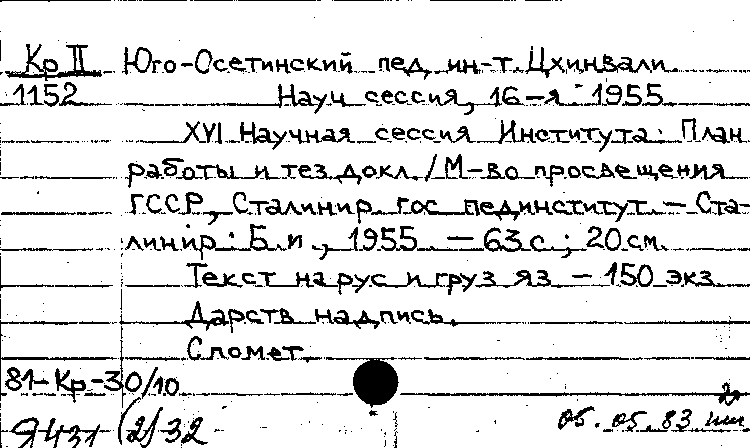 Кр II Юго-Осетинский пед. ин-т. Цхинвали.
1152 Науч сессия, 16-я. 1955
XVI Научная сессия Института: План
работы и тез. докл. / М-во просвещения
ГССР, Сталинир. гос. пединститут. — Ста-
линир: Б. и., 1955. — 63 с.; 20 см.
Текст на рус и груз яз — 150 экз
Дарств надпись.
Сломет.
81-Кр-30/10
Я431(2)32
05.05.83